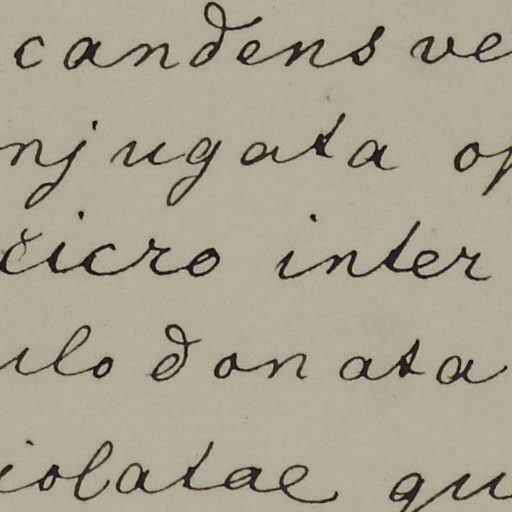 candens ve
njugata op
cicro inter
ulo donata
iolatae qu